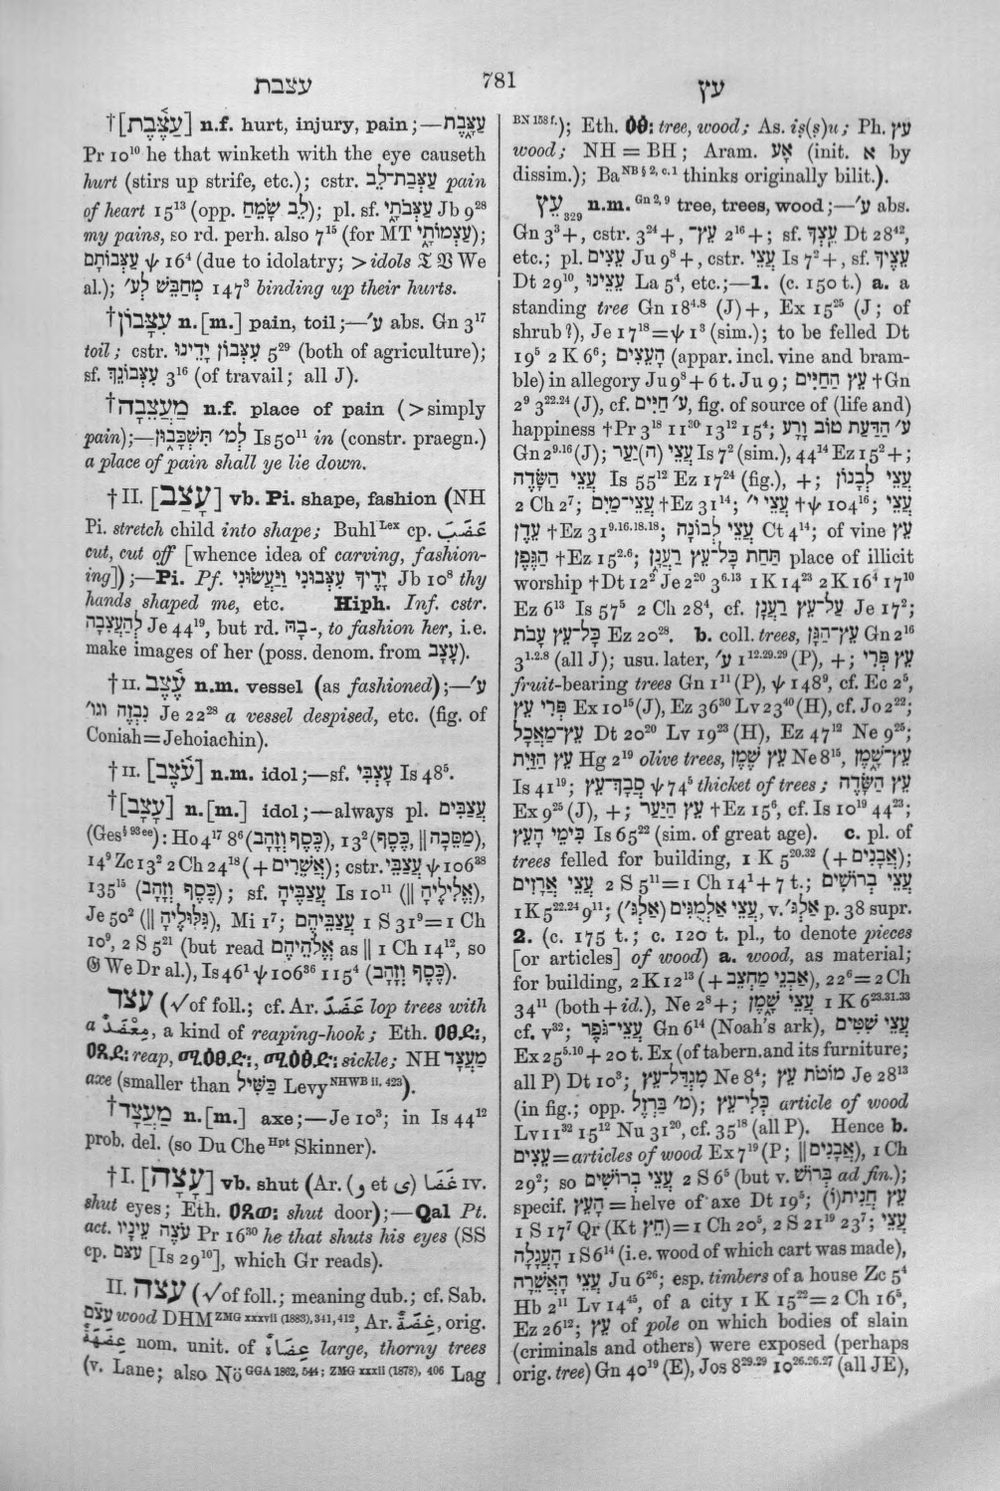 עצבת
781
עץ
†[עַצֶּ֫בֶת] n.f. hurt, injury, pain;—עַצָּ֑בֶת
Pr 10¹⁰ he that winketh with the eye causeth
hurt (stirs up strife, etc.); cstr. עַצְּבַת־לֵב pain
of heart 15¹³ (opp. לֵב שָׂמֵחַ); pl. sf. עַצְּבֹתָ֑י Jb 9²⁸
my pains, so rd. perh. also 7¹⁵ (for MT עַצְמוֹתָ֑י);
עַצְּבוֹתָם ψ 16⁴ (due to idolatry; >idols 𝔗 𝔙 We
al.); מְחַבֵּשׁ לְע׳ 147³ binding up their hurts.
†עִצָּבוֹן n.[m.] pain, toil;—ע׳ abs. Gn 3¹⁷
toil; cstr. עִצְּבוֹן יָדֵינוּ 5²⁹ (both of agriculture);
sf. עִצְּבוֹנֵךְ 3¹⁶ (of travail; all J).
†מַעֲצֵבָה n.f. place of pain (>simply
pain);—לְמ׳ תִּשְׁכָּבוּן Is 50¹¹ in (constr. praegn.)
a place of pain shall ye lie down.
†II. [עָצַב] vb. Pi. shape, fashion (NH
Pi. stretch child into shape; Buhl ᴸᵉˣ cp. عَضَبَ
cut, cut off [whence idea of carving, fashion-
ing]);—Pi. Pf. יָדֶיךָ עִצְּבוּנִי וַיַּעֲשׂוּנִי Jb 10⁸ thy
hands shaped me, etc. Hiph. Inf. cstr.
לְהַעֲצִבָה Je 44¹⁹, but rd. בָהּ-, to fashion her, i.e.
make images of her (poss. denom. from עָצָב).
†II. עֶ֫צֶב n.m. vessel (as fashioned);—ע׳
נִבְזֶה וגו׳ Je 22²⁸ a vessel despised, etc. (fig. of
Coniah=Jehoiachin).
†II. [עֹ֫צֶב] n.m. idol;—sf. עָצְבִּי Is 48⁵.
†[עָצָב] n.[m.] idol;—always pl. עֲצַבִּים
(Ges§ ⁹³ ᵉᵉ): Ho 4¹⁷ 8⁶ (כֶּסֶף וְזָהָב), 13² (כֶּסֶף, ‖ מַסֵּכָה),
14⁹ Zc 13² 2 Ch 24¹⁸ (+ אֲשֵׁרִים); cstr. עֲצַבֵּי ψ 106³⁸
135¹⁵ (כֶּסֶף וְזָהָב); sf. עֲצַבֶּיהָ Is 10¹¹ (‖ אֱלִילֶיהָ),
Je 50² (‖ גִּלּוּלֶיהָ), Mi 1⁷; עֲצַבֵּיהֶם 1 S 31⁹=1 Ch
10⁹, 2 S 5²¹ (but read אֱלֹהֵיהֶם as ‖ 1 Ch 14¹², so
𝔊 We Dr al.), Is 46¹ ψ 106³⁶ 115⁴ (כֶּסֶף וְזָהָב).
עצד (√of foll.; cf. Ar. عَضَدَ lop trees with
a مِعْضَد, a kind of reaping-hook; Eth.
reap, sickle; NH מַעֲצָד
axe (smaller than כַּשִּׁיל Levy ᴺᴴᵂᴮ ⁱⁱ· ⁴²³).
†מַעֲצָד n.[m.] axe;—Je 10³; in Is 44¹²
prob. del. (so Du Che ᴴᵖᵗ Skinner).
†I. [עָצָה] vb. shut (Ar. غَضَا (و et ى) IV.
shut eyes; Eth. shut door);—Qal Pt.
act. עֹצֶה עֵינָיו Pr 16³⁰ he that shuts his eyes (SS
cp. עצם [Is 29¹⁰], which Gr reads).
II. עצה (√of foll.; meaning dub.; cf. Sab.
wood DHM ZMG xxxvii (1883), 341, 412, Ar. orig.
nom. unit. of large, thorny trees
(v. Lane; also Nö GGA 1862, 544; ZMG xxxii (1878), 406 Lag
BN 158 f.); Eth. tree, wood; As. iṣ(ṣ)u; Ph. עץ
wood; NH = BH; Aram. אָע (init. א by
dissim.); Ba NB § 2, c. 1 thinks originally bilit.).
עֵץ₃₂₉ n.m. Gn 2, 9 tree, trees, wood;—ע׳ abs.
Gn 3³+, cstr. 3²⁴+, עֶץ־ 2¹⁶+; sf. עֵצְךָ Dt 28⁴²,
etc.; pl. עֵצִים Ju 9⁸+, cstr. עֲצֵי Is 7²+, sf. עֵצֶיךָ
Dt 29¹⁰, עֵצֵינוּ La 5⁴, etc.;—1. (c. 150 t.) a. a
standing tree Gn 18⁴·⁸ (J)+, Ex 15²⁵ (J; of
shrub?), Je 17¹⁸=ψ 1³ (sim.); to be felled Dt
19⁵ 2 K 6⁶; הָעֵצִים (appar. incl. vine and bram-
ble) in allegory Ju 9⁸+6 t. Ju 9; עֵץ הַחַיִּים †Gn
2⁹ 3²²·²⁴ (J), cf. ע׳ חַיִּים, fig. of source of (life and)
happiness †Pr 3¹⁸ 11³⁰ 13¹² 15⁴; ע׳ הַדַּעַת טוֹב וָרָע
Gn 2⁹·¹⁶ (J); עֲצֵי (ה)יַעַר Is 7² (sim.), 44¹⁴ Ez 15²+;
עֲצֵי הַשָּׂדֶה Is 55¹² Ez 17²⁴ (fig.), +; עֲצֵי לְבָנוֹן
2 Ch 2⁷; עֲצֵי־מַיִם †Ez 31¹⁴; עֲצֵי י׳ †ψ 104¹⁶; עֲצֵי
עֵדֶן †Ez 31⁹·¹⁶·¹⁸·¹⁸; עֲצֵי לְבוֹנָה Ct 4¹⁴; of vine עֵץ
הַגֶּפֶן †Ez 15²·⁶; תַּחַת כָּל־עֵץ רַעֲנָן place of illicit
worship †Dt 12² Je 2²⁰ 3⁶·¹³ 1 K 14²³ 2 K 16⁴ 17¹⁰
Ez 6¹³ Is 57⁵ 2 Ch 28⁴, cf. עַל־עֵץ רַעֲנָן Je 17²;
כָּל־עֵץ עָבֹת Ez 20²⁸. b. coll. trees, עֵץ־הַגָּן Gn 2¹⁶
3¹·²·⁸ (all J); usu. later, ע׳ 1¹²·²⁹·²⁹ (P), +; עֵץ פְּרִי
fruit-bearing trees Gn 1¹¹ (P), ψ 148⁹, cf. Ec 2⁵,
עֵץ פְּרִי Ex 10¹⁵ (J), Ez 36³⁰ Lv 23⁴⁰ (H), cf. Jo 2²²;
עֵץ־מַאֲכָל Dt 20²⁰ Lv 19²³ (H), Ez 47¹² Ne 9²⁵;
עֵץ הַזַּיִת Hg 2¹⁹ olive trees, עֵץ שֶׁמֶן Ne 8¹⁵, עֵץ־שָׁמֶן
Is 41¹⁹; סֲבָךְ־עֵץ ψ 74⁵ thicket of trees; עֵץ הַשָּׂדֶה
Ex 9²⁵ (J), +; עֵץ הַיַּעַר †Ez 15⁶, cf. Is 10¹⁹ 44²³;
כִּימֵי הָעֵץ Is 65²² (sim. of great age). c. pl. of
trees felled for building, 1 K 5²⁰·³² (+אֲבָנִים);
עֲצֵי אֲרָזִים 2 S 5¹¹=1 Ch 14¹+7 t.; עֲצֵי בְרוֹשִׁים
1 K 5²²·²⁴ 9¹¹; עֲצֵי אַלְמֻגִּים (אַלְגּ׳), v. אַלְגּ׳ p. 38 supr.
2. (c. 175 t.; c. 120 t. pl., to denote pieces
[or articles] of wood) a. wood, as material;
for building, 2 K 12¹³ (+אַבְנֵי מַחְצֵב), 22⁶=2 Ch
34¹¹ (both+id.), Ne 2⁸+; עֲצֵי שֶׁמֶן 1 K 6²³·³¹·³³
cf. v³²; עֲצֵי־גֹפֶר Gn 6¹⁴ (Noah's ark), עֲצֵי שִׁטִּים
Ex 25⁵·¹⁰+20 t. Ex (of tabern. and its furniture;
all P) Dt 10³; מִגְדַּל־עֵץ Ne 8⁴; מוֹטֹת עֵץ Je 28¹³
(in fig.; opp. מ׳ בַּרְזֶל); כְּלִי־עֵץ article of wood
Lv 11³² 15¹² Nu 31²⁰, cf. 35¹⁸ (all P). Hence b.
עֵצִים=articles of wood Ex 7¹⁹ (P; ‖ אֲבָנִים), 1 Ch
29²; so עֲצֵי בְרוֹשִׁים 2 S 6⁵ (but v. בְּרוֹשׁ ad fin.);
specif. הָעֵץ=helve of axe Dt 19⁵; עֵץ חֲנִית(וֹ)
1 S 17⁷ Qr (Kt חֵץ)=1 Ch 20⁵, 2 S 21¹⁹ 23⁷; עֲצֵי
הָעֲגָלָה 1 S 6¹⁴ (i.e. wood of which cart was made),
עֲצֵי הָאֲשֵׁרָה Ju 6²⁶; esp. timbers of a house Zc 5⁴
Hb 2¹¹ Lv 14⁴⁵, of a city 1 K 15²²=2 Ch 16⁶,
Ez 26¹²; עֵץ of pole on which bodies of slain
(criminals and others) were exposed (perhaps
orig. tree) Gn 40¹⁹ (E), Jos 8²⁹·²⁹ 10²⁶·²⁶·²⁷ (all JE),